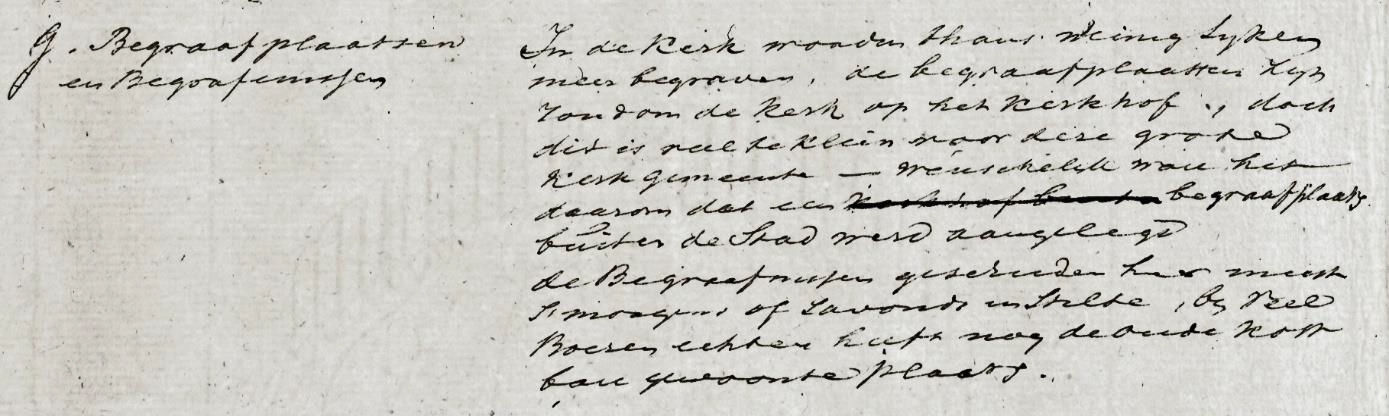 G. Begraafplaatsen
en Begrafenissen
In de Kerk worden thans weinig Lyken
meer begraven, de begraafplaatsen zyn
rondom de Kerk op het Kerkhof, doch
dit is veel te Klein voor deze grote
Kerkgemeente — wenschelyk ware het
daarom dat een kerkhof buiten begraafplaats
buiten de Stad werd aangelegd
de Begraafnissen geschieden hier meest
smorgens of savonds in Stilte, by veel
Boeren echter heeft nog de oude Koff
bau gewoonte plaats.